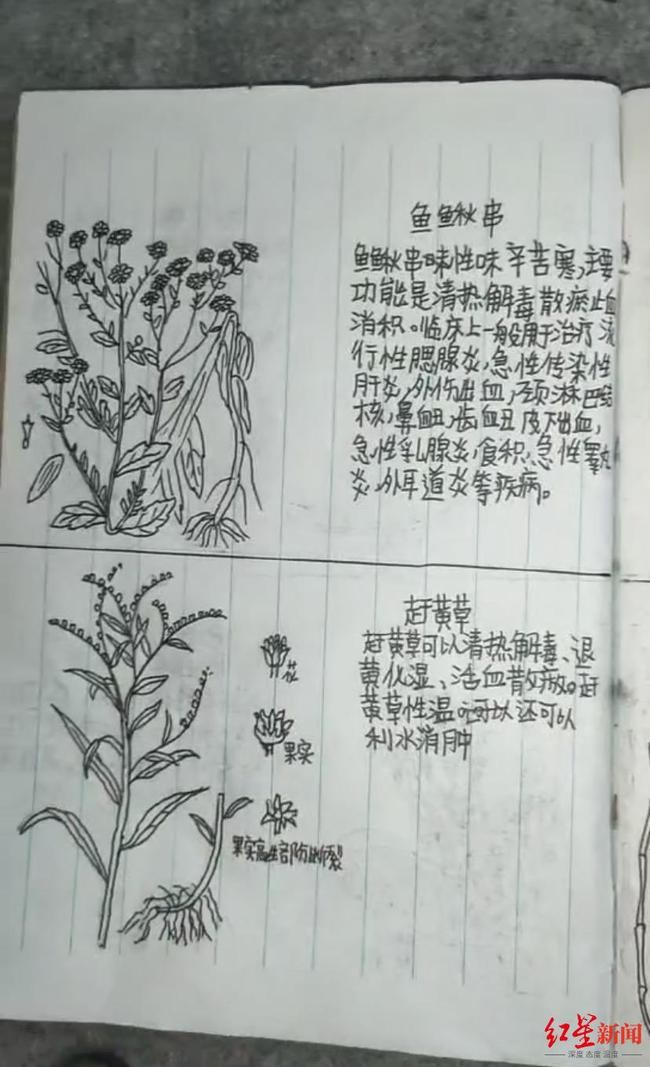 鱼鳅串
鱼鳅串味性味辛苦寒,主要
功能是清热解毒散瘀止血
消积。临床上一般用于治疗流
行性腮腺炎,急性传染性
肝炎,外伤出血,颈淋巴结
核,鼻衄,齿衄皮下出血,
急性乳腺炎,食积,急性睾丸
炎,外耳道炎等疾病。
赶黄草
赶黄草可以清热解毒、退
黄化湿、活血散瘀。赶
黄草性温可以还可以
利水消肿
花
果实
果实
红星新闻
深度 态度 温度